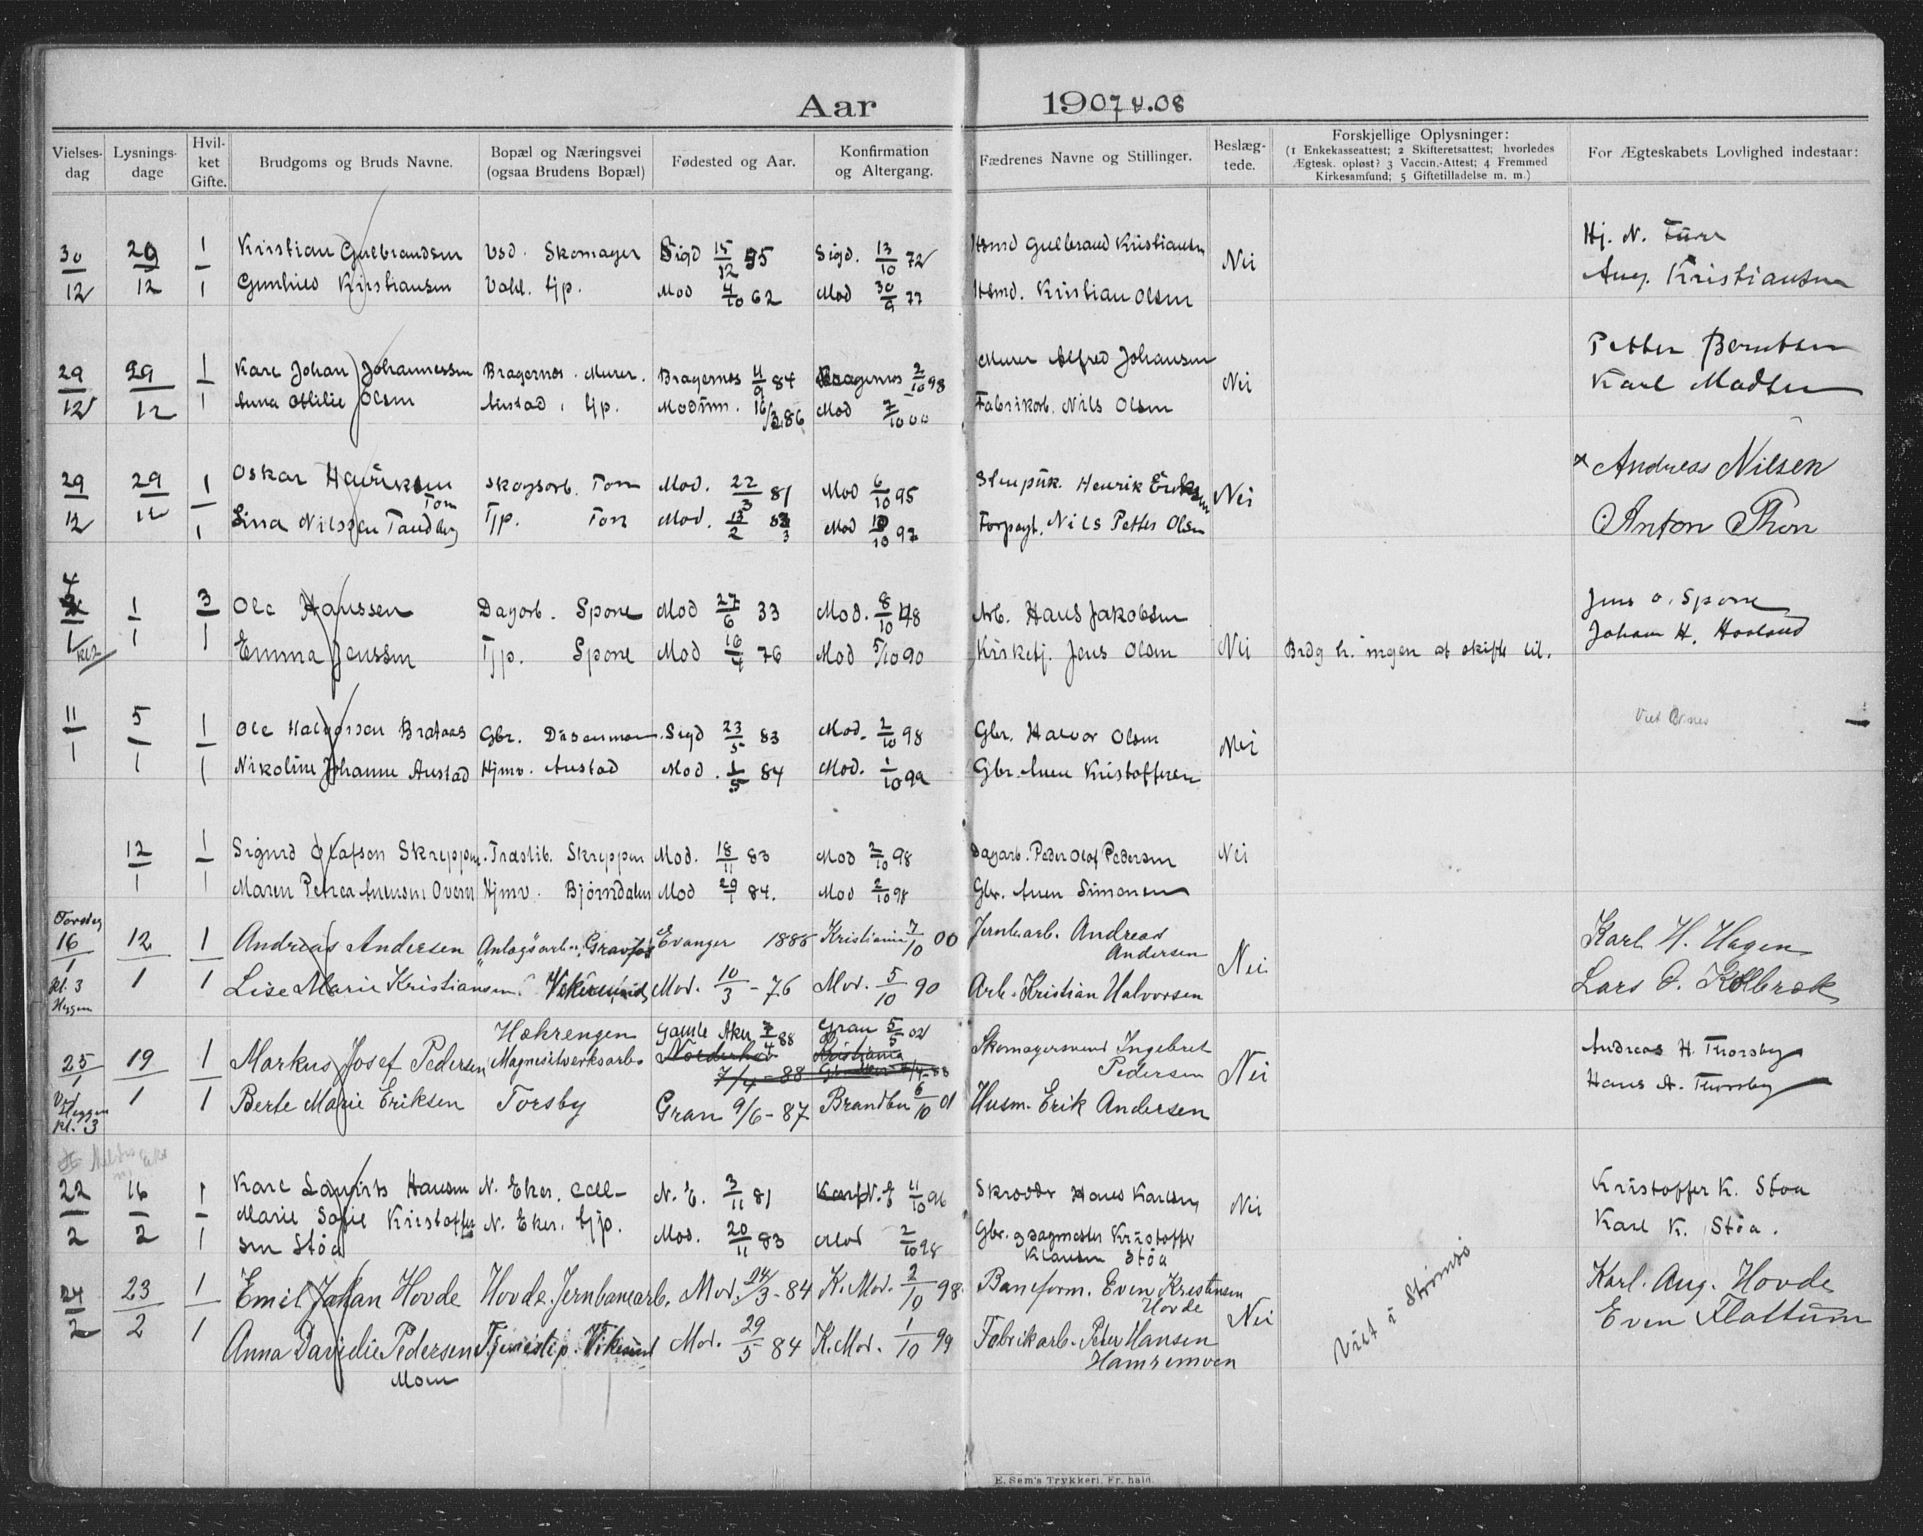 Aar 1907 u. 08
Vielses-dag | Lysnings-dage | Hvil-ket Gifte. | Brudgoms og Bruds Navne. | Bopæl og Næringsvei (ogsaa Brudens Bopæl) | Fødested og Aar. | Konfirmation og Altergang. | Fædrenes Navne og Stillinger. | Beslæg-tede. | Forskjellige Oplysninger: (1 Enkekasseattest; 2 Skifteretsattest; hvorledes Ægtesk. opløst? 3 Vaccin.-Attest; 4 Fremmed Kirkesamfund; 5 Giftetilladelse m. m.) | For Ægteskabets Lovlighed indestaar:
30/12 | 29/12 | 1 | Kristian Gulbrandsen | Skomager | Sigd 15/12 55 | Sigd. 13/10 72 | Husmd Gulbrand Kristiansen | Nei | Hj. N.
1 | Gunhild Kristiansen | tjp. | Mod 4/10 62 | Mod 30/9 77 | Husmd. Kristian Olsen | Aug. Kristiansen
29/12 | 29/12 | 1 | Karl Johan Johannessen | Bragernes. Murer. | Bragernes 11/9 84 | Bragernes 2/10 98 | Murer Alfred Johansen | Nei | Petter Berntsen
1 | Anna Otilie Olsen | Austad, tjp. | Modum. 16/3 86 | Mod 7/10 00 | Fabrikarb. Nils Olsen | Karl Madsen
29/12 | 29/12 | 1 | Oskar Henriksen | Skogsarb. Ton | Mod. 22/3 81 | Mod 6/10 95 | Henrik Eriksen | Nei | x Andreas Nilsen
Ton
1 | Lina Nilssen Tandberg | Tjp. Ton | Mod. 13/2 83 | Mod 10/10 97 | Forpagt. Nils Petter Olsen | Anton Thon
4/1 kl 2 | 1/1 | 3 | Ole Hanssen | Dagarb. Spone | Mod 27/6 33 | Mod. 8/10 48 | Arb. Hans Jakobsen | Jens O. Spone
1 | Emma Jenssen | Tjp. Spone | Mod 16/4 76 | Mod 5/10 90 | Kirketj. Jens Olsen | Nei | Brdg h. ingen at skifte til. | Johan H. Hovland
11/1 | 5/1 | 1 | Ole Halvorsen Brataas | Gbr. | Sigd 23/5 83 | Mod. 2/10 98 | Gbr. Halvor Olsen | Nei | Viet
1 | Nikoline Johanne Austad | Hjmv. Austad | Mod. 1/5 84 | Mod. 1/10 99 | Gbr. Anen Kristoffersen
12/1 | 1 | Sigurd Olafson Skreppen | Træslib. Skreppen | Mod. 18/11 83 | Mod 2/10 98 | Dagarb. Peder Olaf Pedersen | Nei
1 | Maren Petrea Anensen Overn | Hjmv. Bjørndalen | Mod 29/1 84. | Mod 2/10 98 | Gbr. Anen Simonsen
Torsdag
16/1 | 12/1 | 1 | Andreas Andersen | Anlægsarb., Gravfos | Evanger 1886 | Kristiania 7/10 00 | Jernbarb. Andreas Andersen | Nei | Karl H. Hagen
kl. 3 Heggen | 1 | Lise Marie Kristiansen | Vikersund | Mod. 10/3 - 76 | Mod. 5/10 90 | Arb. Kristian Halvorsen | Lars O. Kolbræk
25/1 | 19/1 | 1 | Markus Josef Pedersen | Hækrengen Magnesitverksarb. | Gamle Aker 7/4 88 Norderhov 7/4 - 88 | Gran 5/5 02 Kristiania | Skomagersvend Ingebret Pedersen | Nei | Andreas H. Thorsby
Ved Heggen kl. 3 | 1 | Berte Marie Eriksen | Torsby | Gran 9/6 - 87 | Brandbu 6/10 01 | Husm. Erik Andersen | Hans A. Thorsby
22/2 | 16/2 | 1 | Karl Laurits Hansen | N. Eker. Cell- | N. E. 3/11 81 | N. E 11/10 96 | Skrædder Hans Karlsen | Nei | Kristoffer K. Støa
1 | Marie Sofie Kristoffersen Støa | N. Eker. tjp. | Mod. 20/11 83 | Mod 2/10 98 | Gbr. og sagmester Kristoffer Klausen Støa | Karl K. Støa.
24/2 | 23/2 | 1 | Emil Johan Hovde | Hovde. Jernbanearb. | Mod. 24/3 - 84 | K. Mod. 2/10 98. | Baneform. Even Kristensen Hovde | Nei | Viet i Strømsø | Karl. Aug. Hovde
1 | Anna Davidie Pedersen Moen | Tjenestep. Vikesund | Mod. 29/5 84 | K. Mod. 1/10 99 | Fabrikarb. Peter Hansen Hamremoen | Even Flattum
E. Sem's Trykkeri, Fr. hald.